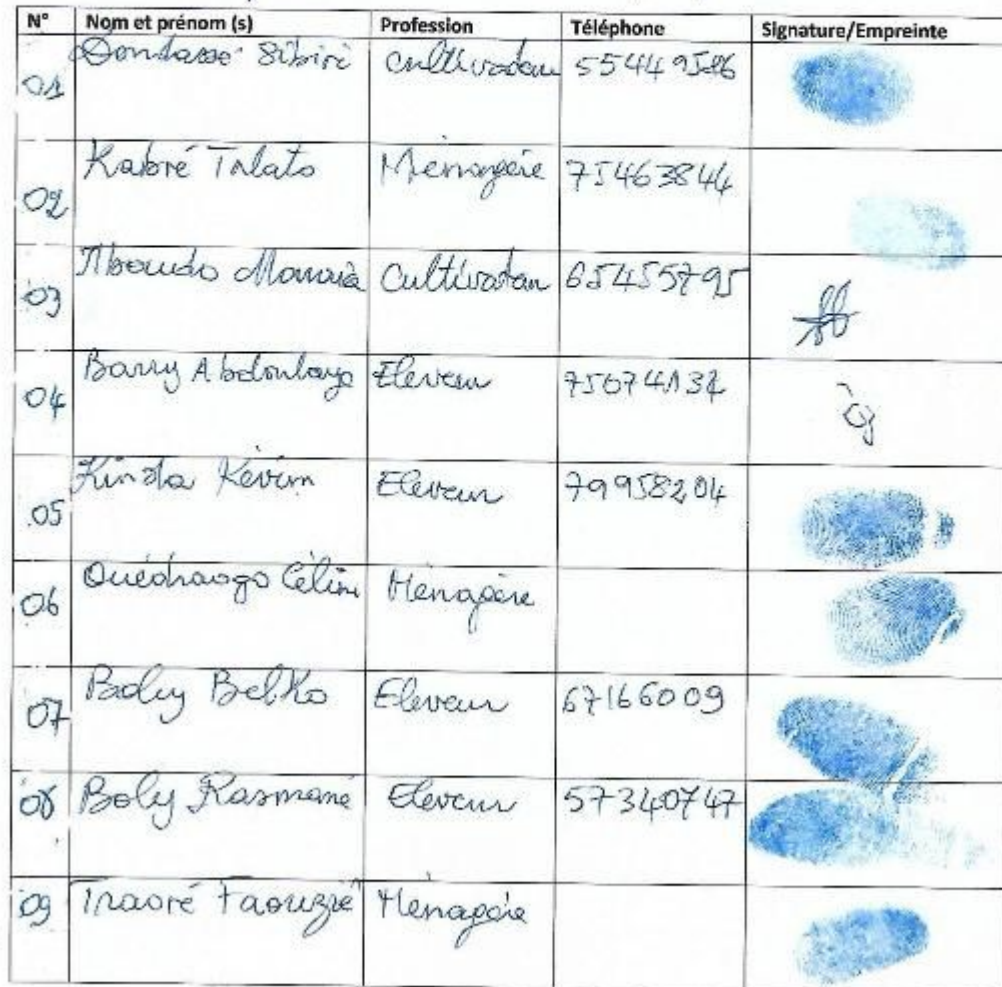 N° Nom et prénom (s) Profession Téléphone Signature/Empreinte
01 Sibiri Cultivateur
02 Kabré Talato Ménagère 75463844
03 Cultivateur 65455795
04 Barry Abdoulaye Eleveur
05 Kinda Kévin Eleveur 79958204
06 Ouédraogo Céline Ménagère
07 Boly Belko Eleveur 67166009
08 Boly Rasmané Eleveur 57340747
09 Traoré Faouzié Ménagère